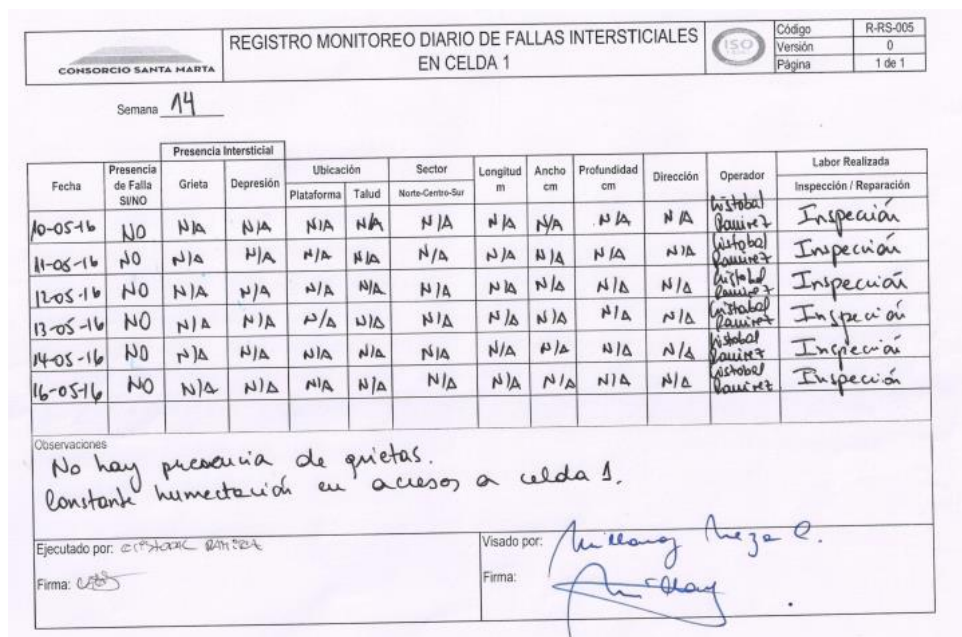 CONSORCIO SANTA MARTA
REGISTRO MONITOREO DIARIO DE FALLAS INTERSTICIALES
EN CELDA 1
ISO
Código R-RS-005
Versión 0
Página 1 de 1
Semana 14
Presencia Intersticial
Fecha Presencia de Falla SI/NO Grieta Depresión Ubicación Plataforma Talud Sector Norte-Centro-Sur Longitud m Ancho cm Profundidad cm Dirección Operador Labor Realizada Inspección / Reparación
10-05-16 NO N/A N/A N/A N/A N/A N/A N/A N/A N/A Cristobal Ramirez Inspección
11-05-16 NO N/A N/A N/A N/A N/A N/A N/A N/A N/A Cristobal Ramirez Inspección
12-05-16 NO N/A N/A N/A N/A N/A N/A N/A N/A N/A Cristobal Ramirez Inspección
13-05-16 NO N/A N/A N/A N/A N/A N/A N/A N/A N/A Cristobal Ramirez Inspección
14-05-16 NO N/A N/A N/A N/A N/A N/A N/A N/A N/A Cristobal Ramirez Inspección
16-05-16 NO N/A N/A N/A N/A N/A N/A N/A N/A N/A Cristobal Ramirez Inspección
Observaciones
No hay presencia de grietas.
Constante humectación en accesos a celda 1.
Ejecutado por: CRISTOBAL RAMIREZ
Visado por: Meza C.
Firma:
Firma: